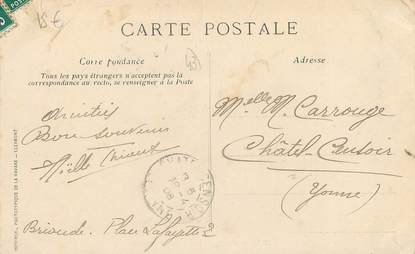 18€
CARTE POSTALE
Correspondance
Tous les pays étrangers n'acceptent pas la
correspondance au recto, se renseigner à la Poste
Adresse
Amitiés
Bon Souvenir
Brioude. Place Lafayette 2
Melle M. Carrouge
Châtel-Censoir
(Yonne)